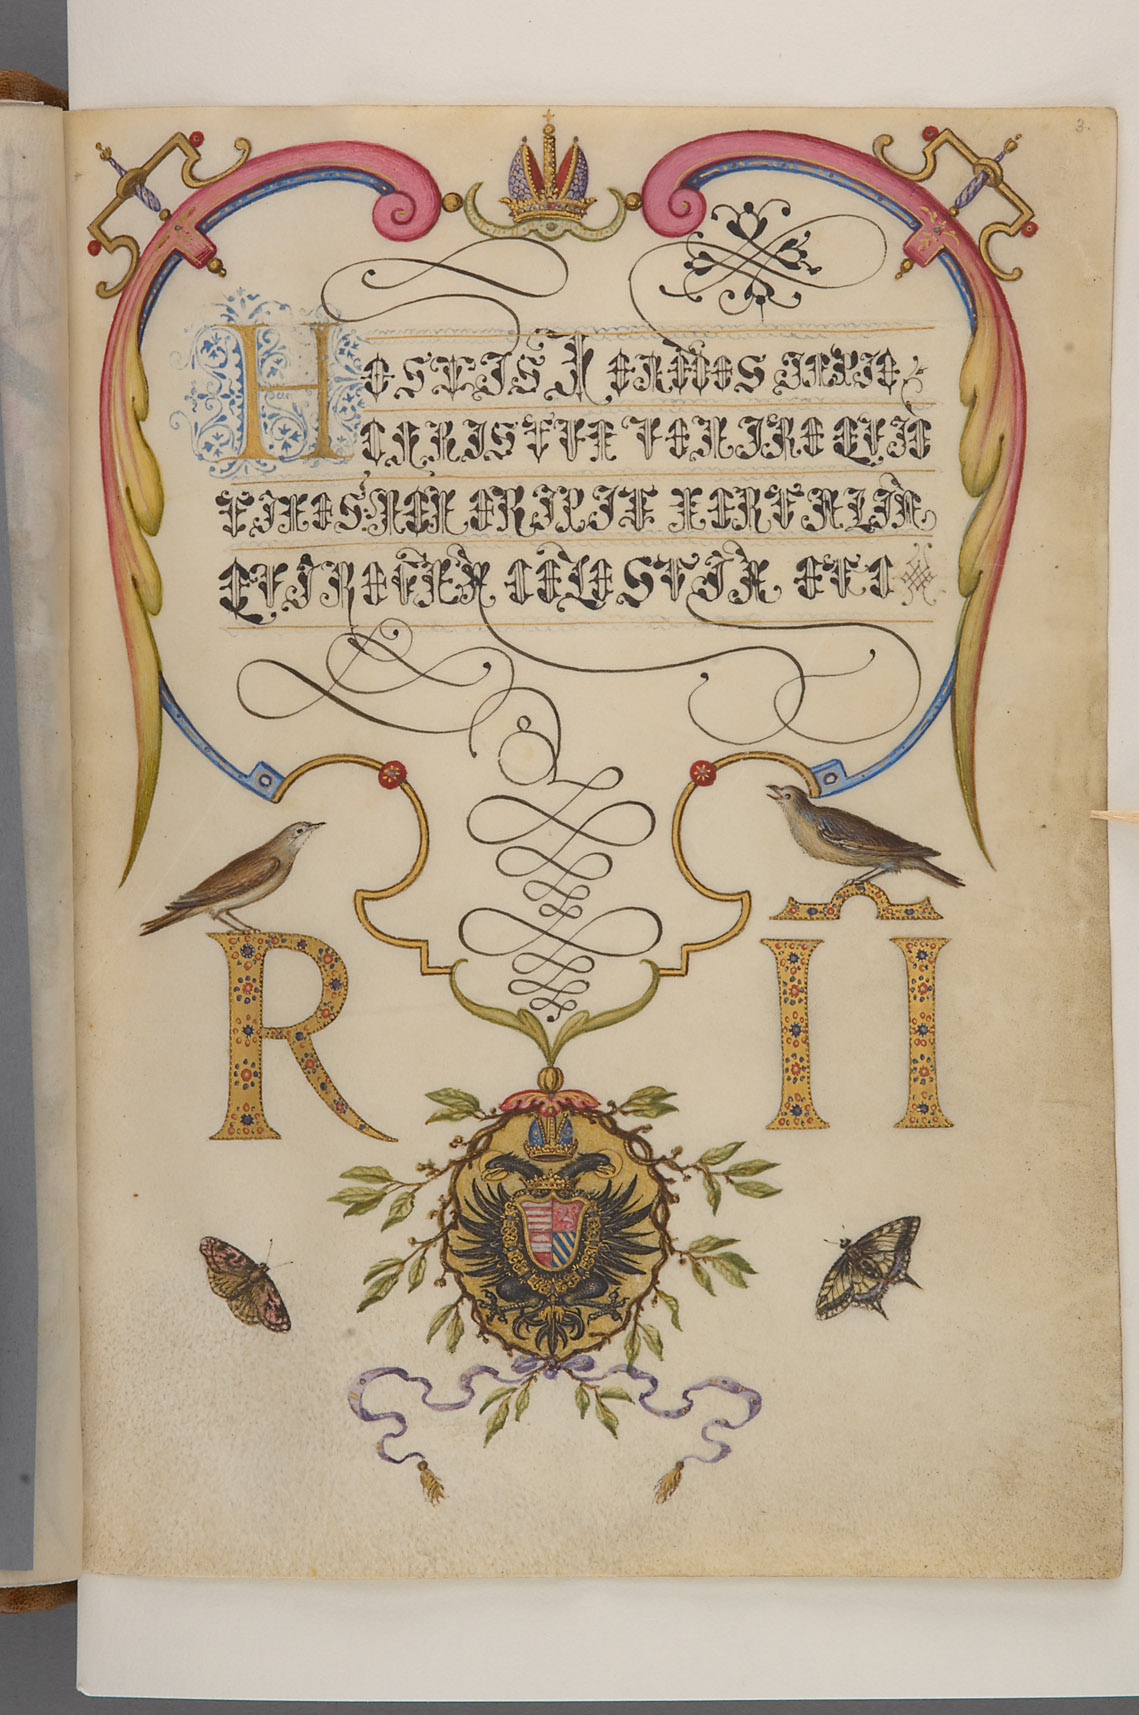 3.
HOSTIS HERODES IMPIE
CHRISTVM VENIRE QVID
TIMES NON ERIPIT MORTALIA
QVI CŒLESTIA ETC
R II